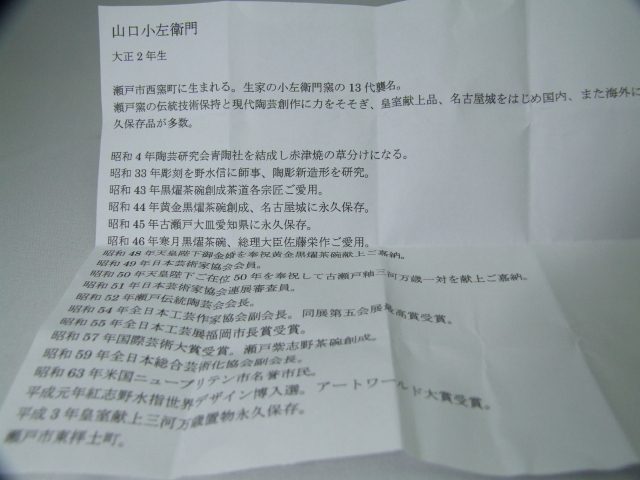 山口小左衛門
大正2年生
瀬戸市西窯町に生まれる。生家の小左衛門窯の13代襲名。
瀬戸窯の伝統技術保持と現代陶芸創作に力をそそぎ、皇室献上品、名古屋城をはじめ国内、また海外に
久保存品が多数。
昭和4年陶芸研究会青陶社を結成し赤津焼の草分けになる。
昭和33年彫刻を野水信に師事、陶彫新造形を研究。
昭和43年黒燿茶碗創成茶道各宗匠ご愛用。
昭和44年黄金黒燿茶碗創成、名古屋城に永久保存。
昭和45年古瀬戸大皿愛知県に永久保存。
昭和46年寒月黒燿茶碗、総理大臣佐藤栄作ご愛用。
昭和48年天皇陛下御金婚を奉祝黄金黒燿茶碗献上ご嘉納。
昭和49年日本芸術家協会会員。
昭和50年天皇陛下ご在位50年を奉祝して古瀬戸釉三河万歳一対を献上ご嘉納。
昭和51年日本芸術家協会連展審査員。
昭和52年瀬戸伝統陶芸会会長。
昭和54年全日本工芸作家協会副会長。同展第五会展最高賞受賞。
昭和55年全日本工芸展福岡市長賞受賞。
昭和57年国際芸術大賞受賞。瀬戸紫志野茶碗創成。
昭和59年全日本総合芸術化協会副会長。
昭和63年米国ニューブリテン市名誉市民。
平成元年紅志野水指世界デザイン博入選。アートワールド大賞受賞。
平成3年皇室献上三河万歳置物永久保存。
瀬戸市東拝土町。